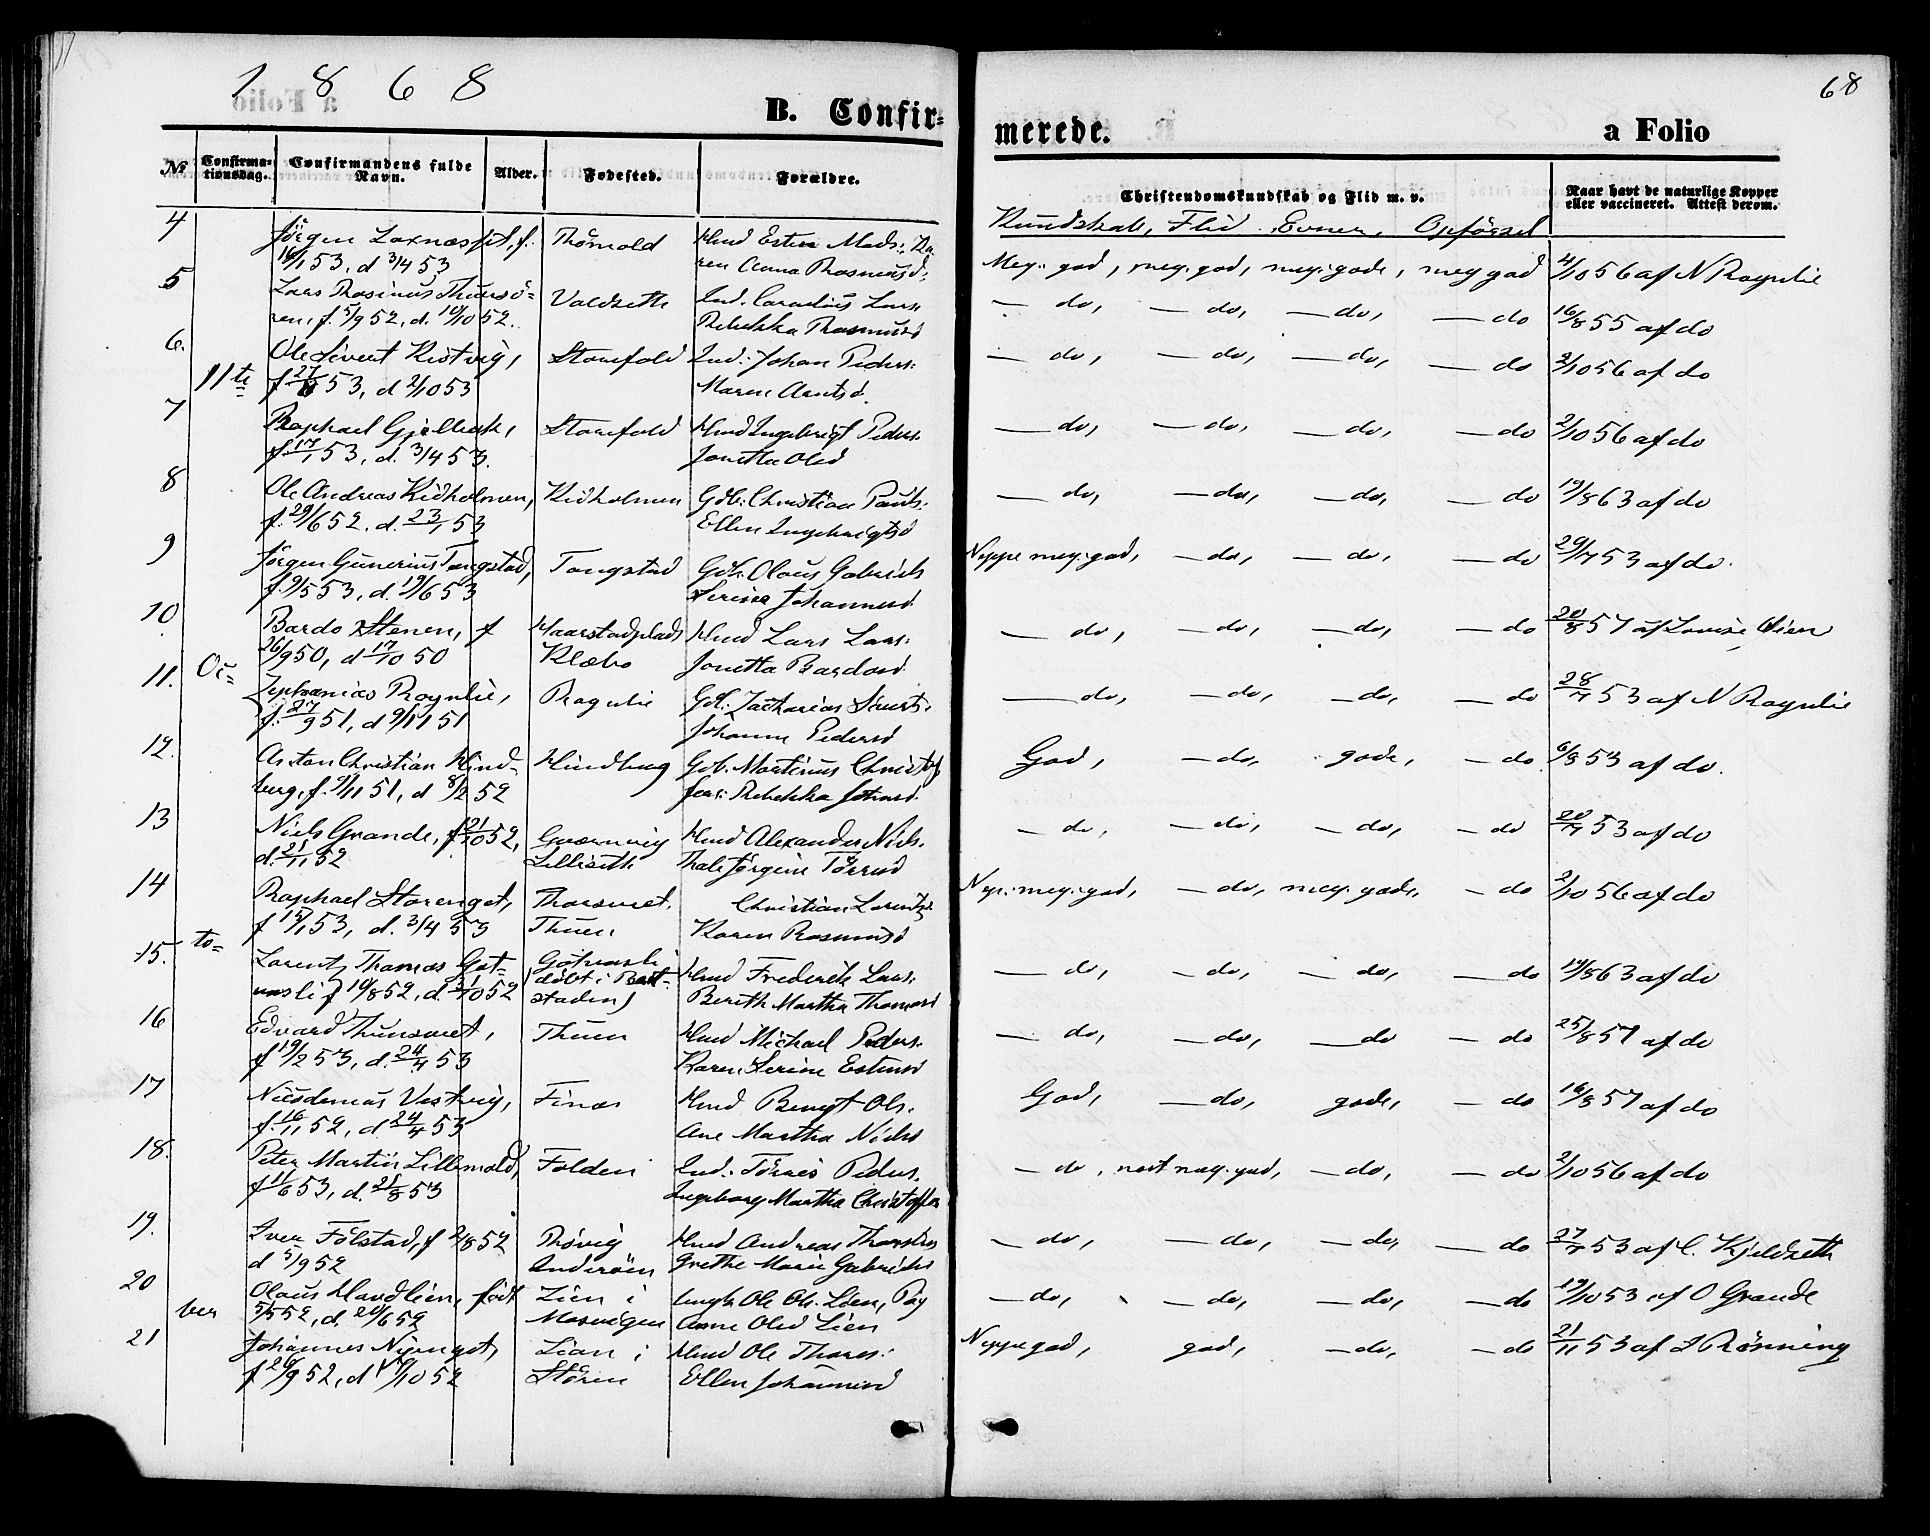 1 8 6 8
68
B. Confir-
merede.
a Folio
No
Confirma-
tionsdag.
Confirmandens fulde
Navn.
Alder.
Fødested.
Forældre.
Christendomskundskab og Flid m. v.
Naar havt de naturlige Kopper
eller vaccineret. Attest derom.
Kundskab, Flid Evner, Opførsel
11te Oc= to= ber
4
Jørgen f.
16/1 53, d 3/4 53
Thømold
Hmd Esten Mads: Ka
ren Anna Rasmusd.
Meg. god, meg. god, meg. gode, meg god
4/10 56 af N Rognlie
5
Lars Rasinus Thuesø-
ren, f. 5/9 52, d. 10/10 52.
Valdsette
Ind. Cornelius Lars.
Rebekka Rasmusd
— do, — do, — do, — do
16/8 55 af do
6.
Ole Sivert Kistvig,
f 27/8 53, d 2/10 53
Storefold
Ind. Johan Peders:
Maren Arntsd.
— do, — do, — do, — do
2/10 56 af do
7
Raphael Gjelbak,
f. 17/1 53, d. 3/4 53.
Storefold
Hmd Ingebrigt Peders.
Jonetta Olsd
— do, — do, — do, — do
2/10 56 af do
8
Ole Andreas Kidholmen,
f. 29/6 52, d. 23/1 53
Kidholmen
Gdb. Christian Pauls.
Ellen Ingebrigtsd
— do, — do, — do, — do
19/8 63 af do
9
Jørgen Gunerius Tangstad,
f. 9/5 53, d. 19/6 53
Tangstad
Gdb. Olaus Gabriels
Serina Johannesd.
Neppe meg. god, — do, — do, — do
29/7 53 af do.
10
Bardo Stenen, f
26/9 50, d 17/10 50
Haarstadplads
Klæbo
Hmd Lars Lars.
Jonetta Bardosd.
— do, — do, — do, — do
20/8 57 af Lovise Oien
11.
Zephanias Rognlie,
f. 27/9 51, d 9/11 51
Rognlie
Gdb. Zacharias Siverts.
Johanna Pedersd
— do, — do, — do, — do
28/7 53 af N Rognlie
12.
Anton Christian Hind-
berg, f. 9/11 51, d 8/2 52
Hindberg
Gdb. Martinus Christof
fers: Rebekka Johnsd.
God, — do, gode, — do
6/8 53 af do.
13
Niels Grande, f 21/10 52,
d. 21/11 52
Grønvig
Lillesette
Hmd Alexander Niels.
Thale Jørgine Tørrisd
— do, — do, — do, — do
20/7 53 af do
14
Raphael Storenget,
f 15/1 53, d. 3/4 53
Thorsnet.
Thuen
Christian Lorentz.
Karen Rasmusd
Nep. meg. god, — do, meg. gode, — do
2/10 56 af do
15.
Lorentz Thomas Gat-
nesli f 19/8 52, d. 31/10 52
Gatnesli
(døbt i Beit-
staden)
Hmd Frederik Lars.
Bereth Martha Thomasd
— do, — do, — do, — do
19/8 63 af do
16
Edvard Thunsnet,
f 19/2 53, d. 24/4 53
Thuen
Hmd Michael Peders.
Karen Serine Estensd
— do, — do, — do — do
25/8 57 af do
17
Nicodemus Vestvig,
f. 16/11 52, d. 24/4 53
Finæs
Hmd Bengt Ols.
Ane Martha Nielsd
God, — do, gode, — do
16/8 57 af do
18.
Peter Martin Lillemold,
f 11/6 53, d. 21/8 53
Folden
Ind. Tørris Peders.
Ingeborg Martha Christoffers
— do, næst meg. god, — do, — do
2/10 56 af do
19.
Iver Følstad, f 2/8 52
d 5/9 52
Røvig
Inderøen
Hmd Andreas Thomas
Grethe Marie Gabriels
— do, — do, — do, — do
27/7 53 af C. Kjeldseth
20
Olaus Havdlien, født
5/5 52, d. 20/6 52
Lien i
Mosvigen
Ungk Ole Ols. Lien, Pig
Anne Olsd Lien
— do, — do, — do, — do
19/10 53 af O Grande
21
Johannes Nyenget,
f 26/9 52, d 10/10 52
Lian i
Støren
Hmd Ole Thores.
Ellen Johannesd
Neppe god, god, — do, — do
21/11 53 af I Rønning